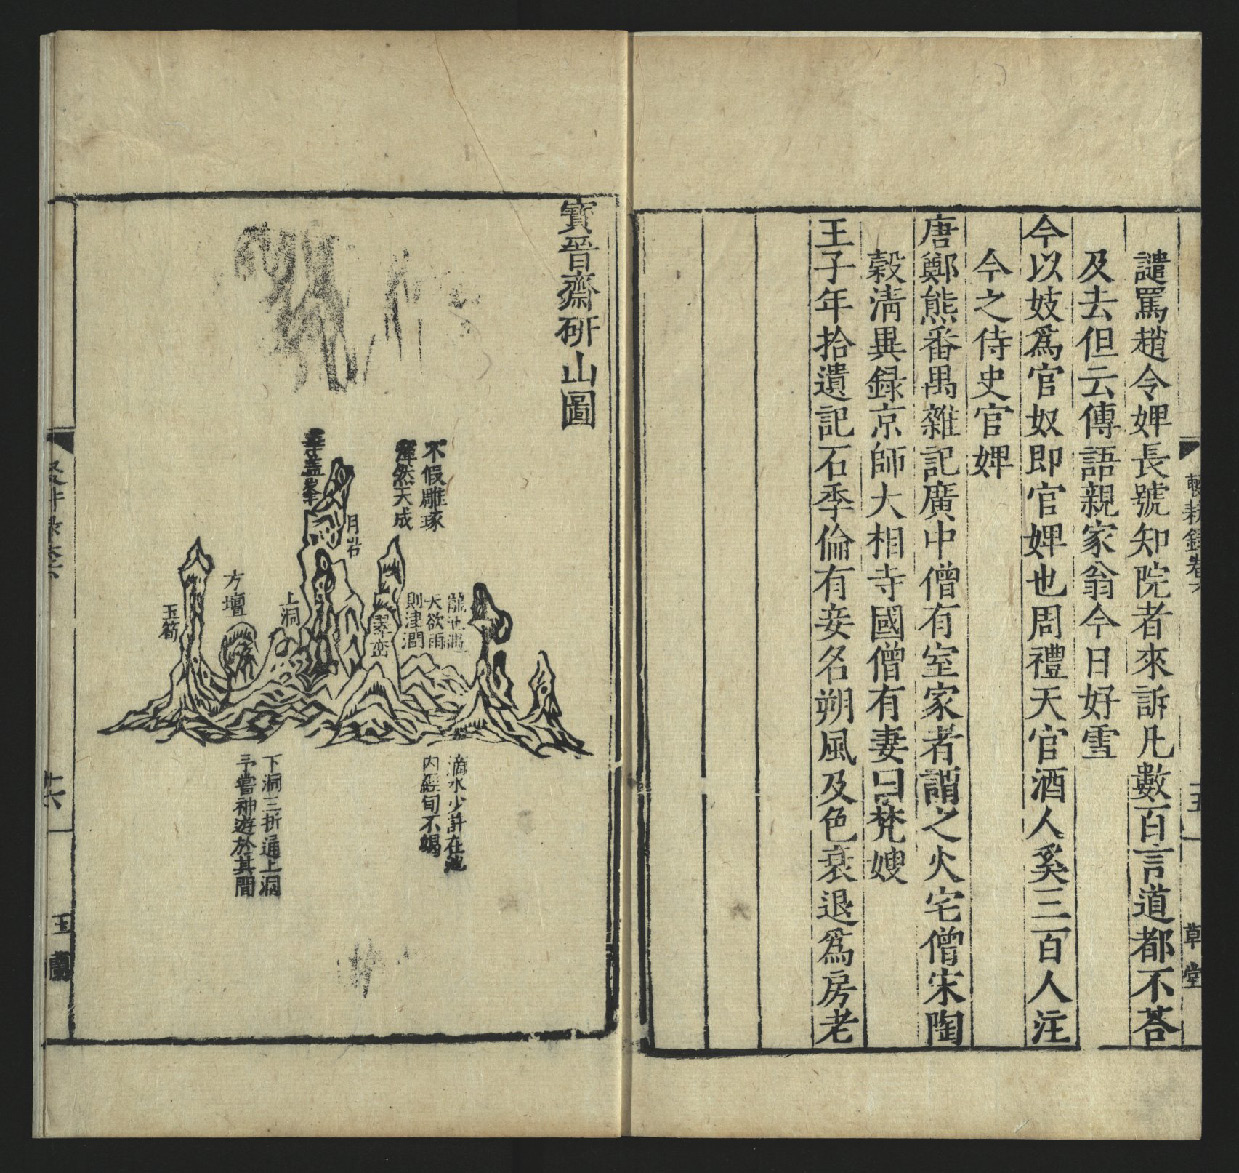 譴罵趙令婢長號知院者來訴凡數百言道都不荅
及去但云傳語親家翁今日好雪
今以妓爲官奴即官婢也周禮天官酒人奚三百人注
今之侍史官婢
唐鄭熊番禺雜記廣中僧有室家者謂之火宅僧宋陶
穀清異録京師大相寺國僧有妻曰梵嫂
王子年拾遺記石季倫有妾名朔風及色衰退爲房老
寶晉齋研山圖
不假雕琢
渾然天成
華蓋峯
月岩
方壇
玉筍
上洞
翠巒
龍池遇
天欲雨
則津潤
下洞三折通上洞
予嘗神遊於其間
滴水少許在池
内經旬不竭